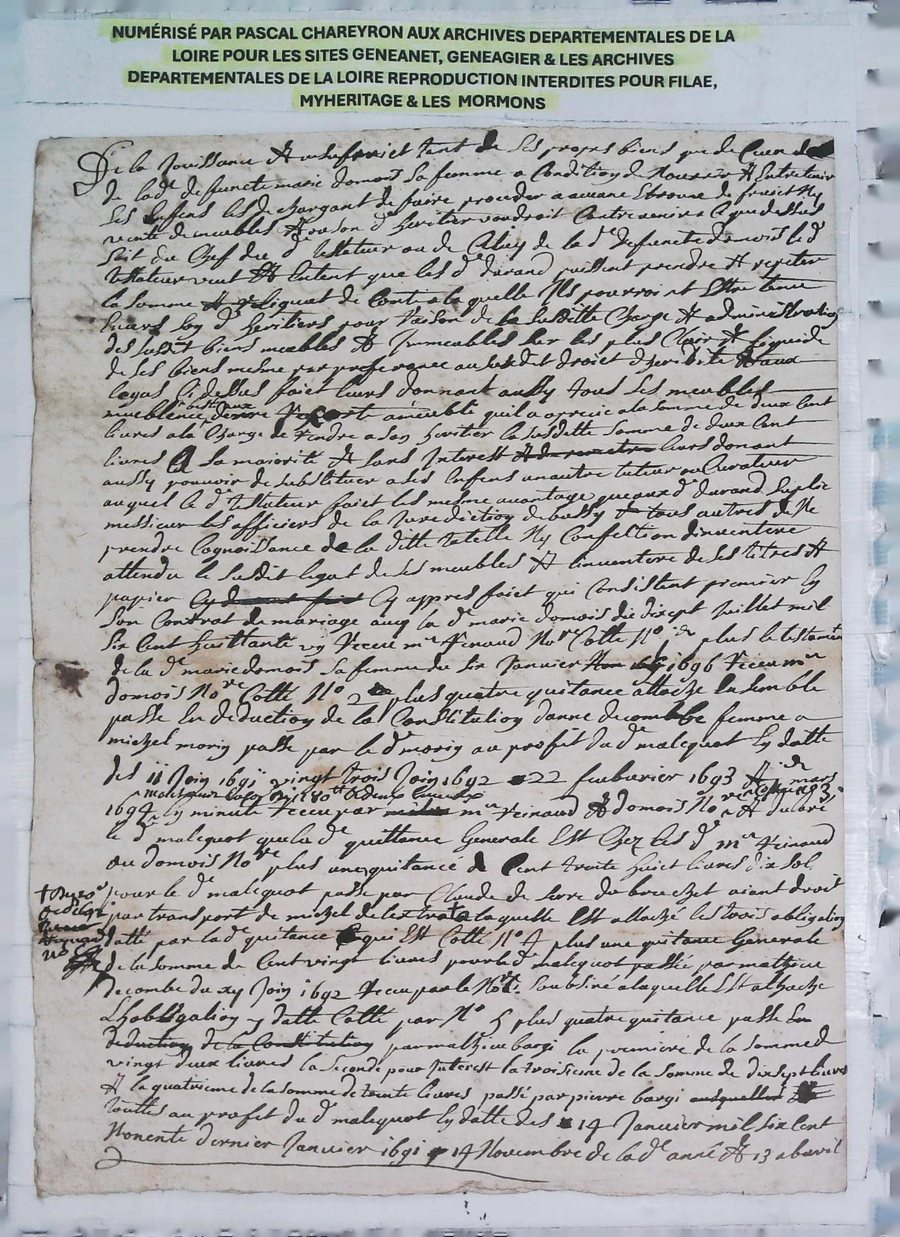 NUMÉRISÉ PAR PASCAL CHAREYRON AUX ARCHIVES DEPARTEMENTALES DE LA
LOIRE POUR LES SITES GENEANET, GENEAGIER & LES ARCHIVES
DEPARTEMENTALES DE LA LOIRE REPRODUCTION INTERDITES POUR FILAE,
MYHERITAGE & LES MORMONS
De la Jouissance & usufruict tant de ses propres biens que de Ceux de
de lad. defuncte marie domois sa femme a Condition de Nourrir & Entretenir
ses Enfens les dechargant de faire proceder a aucune de fruict Ny
vente de meubles & ou son d. heritier voudroit Contrevenir a Ce que dessus
soit du Chef du d. testateur ou de Celuy de la d. defuncte domois le d.
testateur veut & Entent que les d. durand puissent prendre & repeter
la somme de laquelle Ils pourroint Estre tenu
Envers son d. heritiers pour raison de la susditte Charge & administration
des susdit biens meubles & Immeubles sur les plus Clair & liquide
de ses biens mesme par preferance au susdit droict d'heredité & aux
legas Cy dessus faict leurs donnant aussy tous ses meubles
ameublé quil a apprecie a la somme de deux Cent
livres a la Charge de rendre a son heritier la susditte somme de deux Cent
livres a sa majorité & sans Interest leurs donant
aussy pouvoir de substituer a ses Enfens un autre tuteur ou Curateur
auquel le d. testateur faict les mesme avantage que aux d. durand suplie
messieur les officiers de la Juredictiõ de bussy & tous autres de Ne
prendre Cognoissance de la ditte tutelle Ny Confection dinventere
attendu le susdit legat de ses meubles & linventere de ses titres &
papier Cy appres faict qui Consistent premier en
son Contrat de mariage avec la d. marie domois du dixsept Juillet mil
six Cent huittante receu me Renaud Nore Cotté No plus le testament
de la d. marie domois sa femme du six Janvier 1696 receu me
domois Nore Cotté No 2 plus quatre quitance attaché Ensemble
passe En deduction de la Constitution danne decombe femme a
michel morin passé par le d. morin au profit du d. malequot En datte
des 11 Join 1691 vingt trois Join 1692 22 feubvrier 1693 &
1694 En minutte receu par me Reinaud & domois Nore
le d. malequot que la d. quittance Generale Est Chez les d. me Reinaud
ou domois Nore plus une quitance de Cent trante huict livres dix sol
pour le d. malequot passé par Claude de serre du bruchet aiant droit
par transport de michel de a laquelle Est attaché les trois obligation
datté par lad. quitance qui Est Cotté No 4 plus une quitance Generale
de la somme de Cent vingt livres pour le d. malequot passée par mathieu
decombe du xy Join 1692 receu par le Nore soubsiné a laquelle Est attachée
Lhobligation y datté Cotté par No 5 plus quatre quitance passé En
deduction de la Constitution par mathieu bargi la premiere de la somme de
vingt deux livres la seconde pour Interest la troisieme de la somme de dixsept livres
& la quatrieme de la somme de trente livres passé par pierre bargi
touttes au profit du d. malequot En datte des 14 Janvier mil six Cent
Nonente dernier Janvier 1691 14 Novembre de la d. anné & 13 abvril